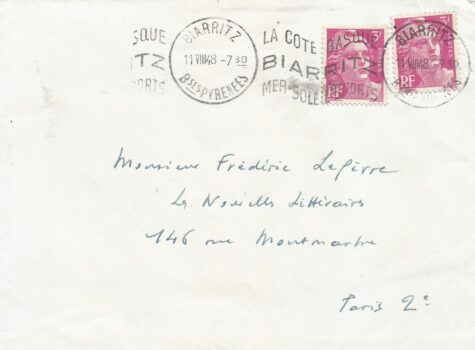 SQUE
TZ
ORTS
BIARRITZ
11 VIII 48 - 7 30
BSES PYRENEES
LA COTE BASQUE
BIARRITZ
MER SOLEIL SPORTS
3F
RF
BIARRITZ
11 VIII 48 - 7 30
RF
Monsieur Frédéric Lefèvre
Les Nouvelles Littéraires
146 rue Montmartre
Paris 2e